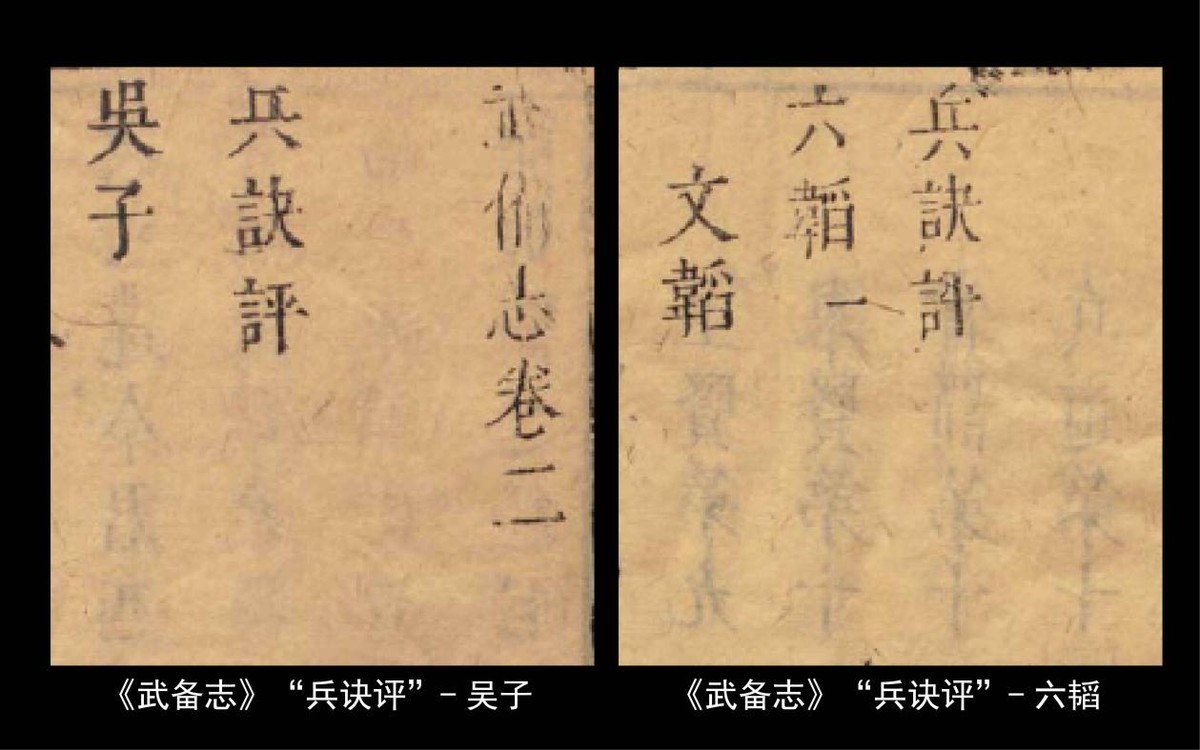 武俻志卷二
兵訣評
吳子
兵訣評
六韜一
文韜
《武备志》“兵诀评”－吴子
《武备志》“兵诀评”－六韬